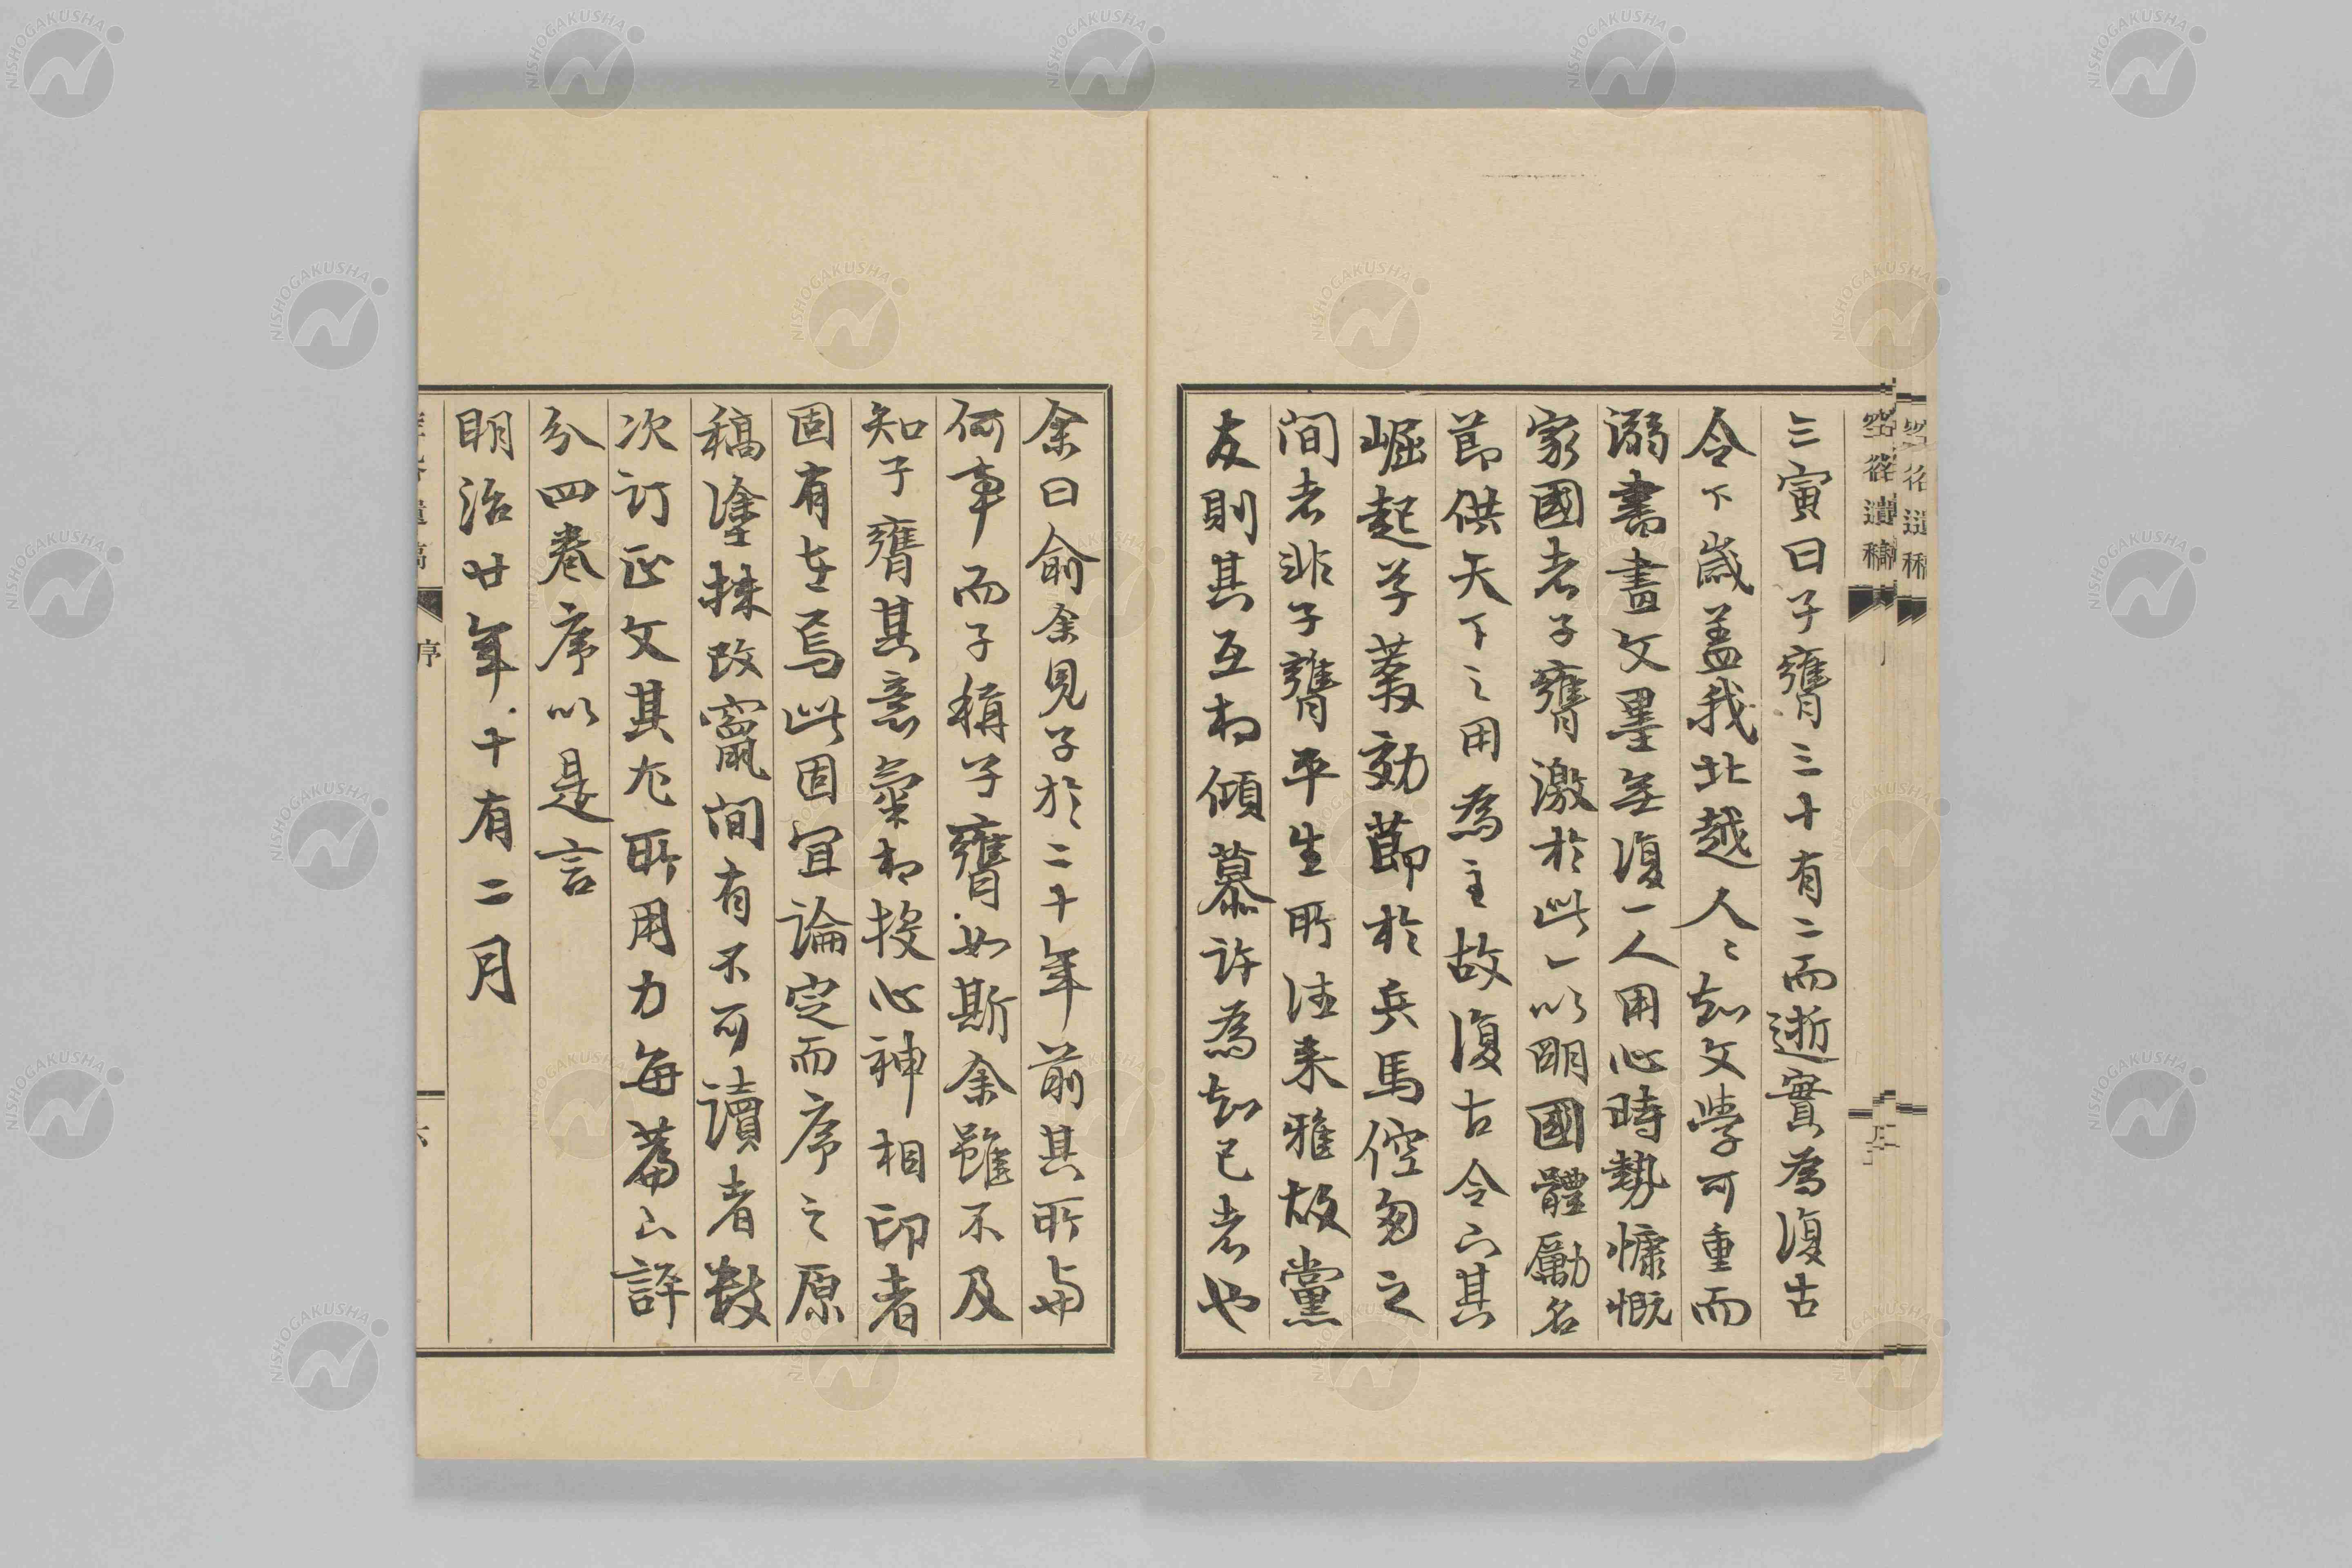 三寅曰子𦡳三十有二而逝實為復古
令下歲蓋我北越人〻知文學可重而
溺書畫文墨無復一人用心時勢慷慨
家國者子𦡳激於此一以明國體勵名
節供天下之用為主故復古令亦其
崛起草叢効節於兵馬倥匆之
間者非子𦡳平生所往来雅故黨
友則其互相傾慕許為知己者也
余曰俞余見子於二十年前其所与
何事而子稱子𦡳如斯余雖不及
知子𦡳其意氣相投心神相印者
固有在焉此固宜論定而序之原
稿塗抹改竄間有不可讀者數
次訂正文其尤所用力每篇亦評
分四卷序以是言
明治廿年十有二月
序
NISHOGAKUSHA